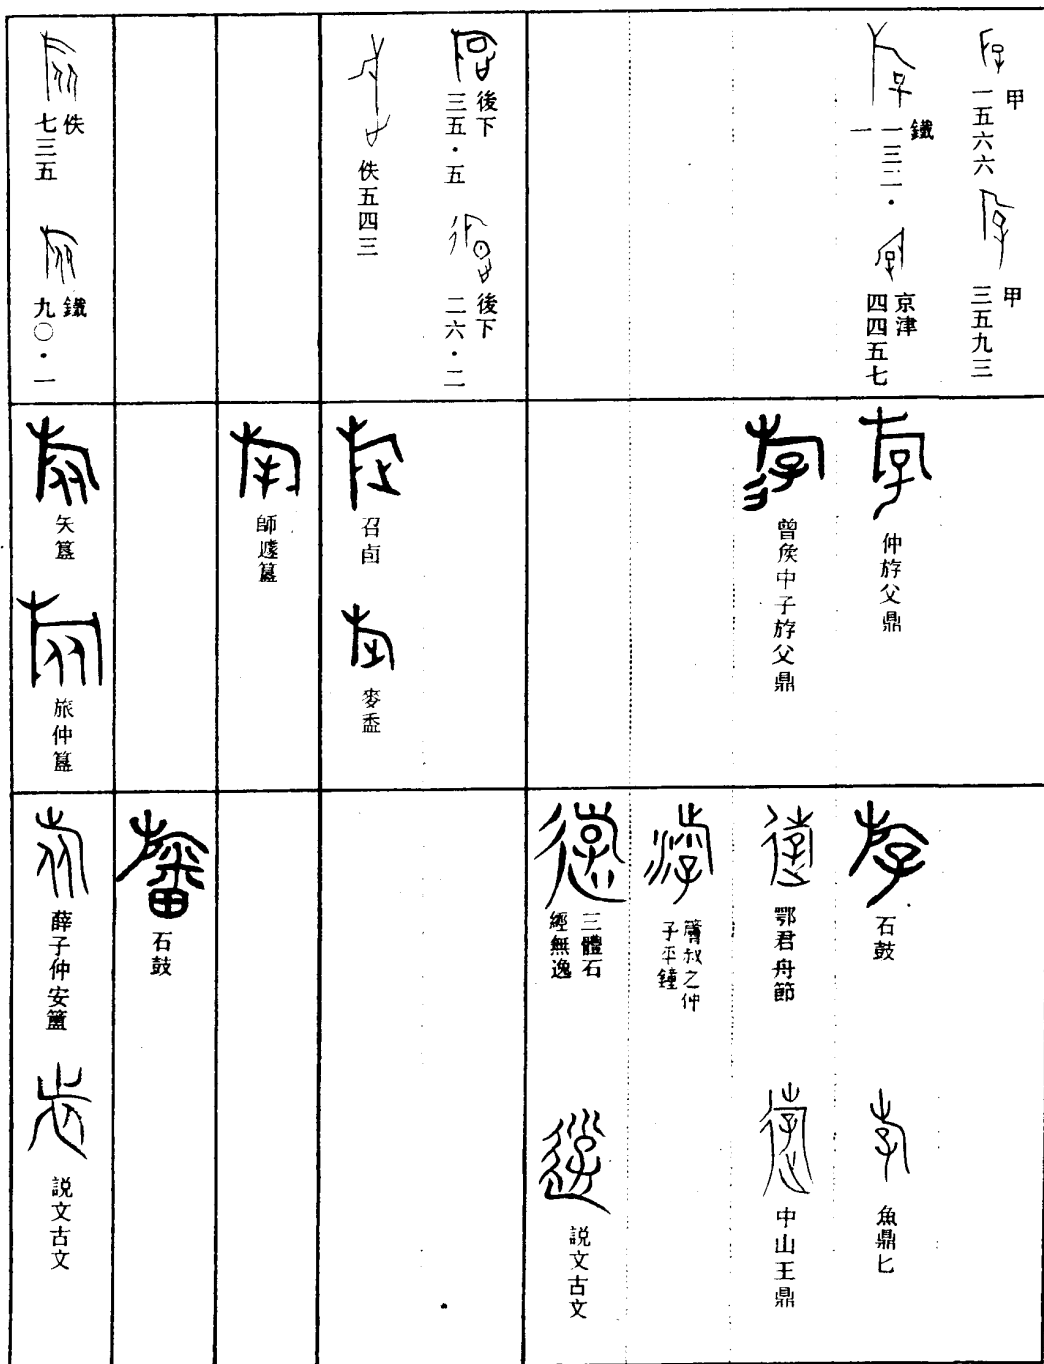 甲
一五六六
甲
三五九三
鐵
一三二·
一
京津
四四五七
後下
三五·五
後下
二六·二
佚五四三
佚
七三五
鐵
九〇·一
仲斿父鼎
曾矦中子斿父鼎
召卣
麥盉
師遽簋
夨簋
旅仲簋
石鼓
魚鼎匕
鄂君舟節
中山王鼎
簷叔之仲
子平鐘
三體石
經無逸
説文古文
石鼓
薛子仲安簠
説文古文